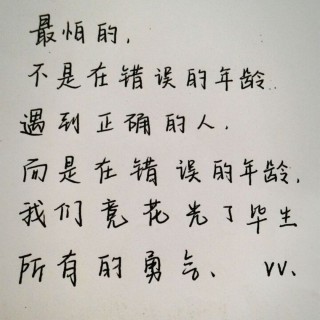 最怕的，
不是在错误的年龄
遇到正确的人，
而是在错误的年龄，
我们竟花光了毕生
所有的勇气、 VV、